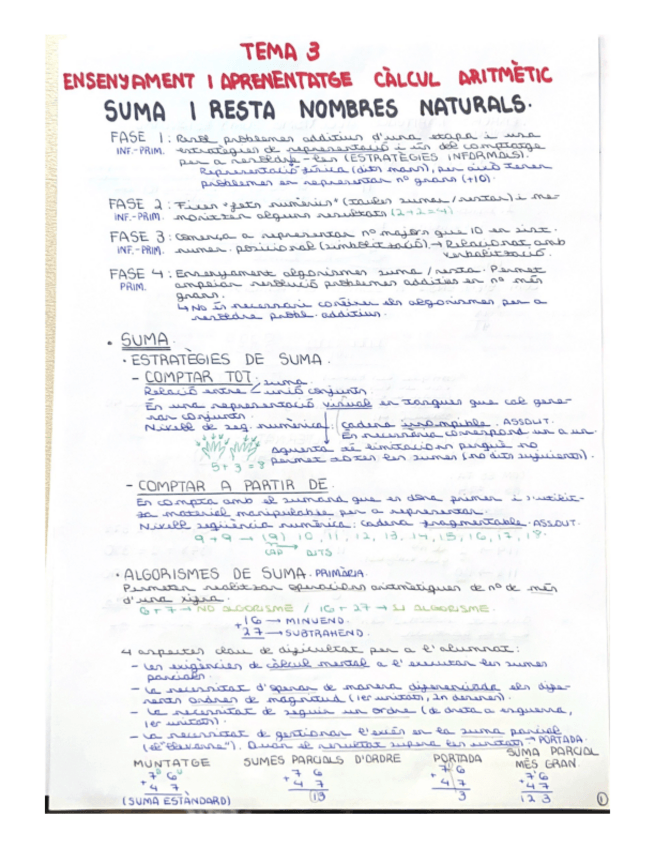 TEMA 3
ENSENYAMENT I APRENENTATGE CÀLCUL ARITMÈTIC
SUMA I RESTA NOMBRES NATURALS.
FASE 1: Resol problemes additius d'una etapa i usa
INF.-PRIM. estratègies de representació i ús del comptatge
per a resoldre-les (ESTRATÈGIES INFORMALS).
Representació física (dits mans), per això tenen
problemes en representar nº grans (+10).
FASE 2: Fixen "fets numèrics" (taules sumes/restes) i me-
INF.-PRIM. moritzen alguns resultats (2+2=4)
FASE 3: Comença a representar nº majors que 10 en sist.
INF.-PRIM. numer. posicional (simbolització). → Relacionat amb
verbalització.
FASE 4: Ensenyament algorismes suma/resta. Permet
PRIM. ampliar resolució problemes additius en nº més
grans.
↳ No és necessari conèixer els algorismes per a
resoldre probl. additius.
• SUMA.
• ESTRATÈGIES DE SUMA.
- COMPTAR TOT.
Relació entre < suma / unió conjunts.
És una representació visual en tanques que cal gene-
rar conjunts.
Nivell de seq. numèrica: cadena irrompible. ASSOLIT.
És necessària correspond. un a un.
Aquesta té limitacions perquè no
permet totes les sumes (no dits suficients).
5 + 3 = 8
- COMPTAR A PARTIR DE.
Es compta amb el sumand que es dona primer i s'utilit-
za material manipulable per a representar.
Nivell seqüència numèrica: cadena fragmentable. ASSOLIT.
9 + 9 → (9) 10, 11, 12, 13, 14, 15, 16, 17, 18.
CAP → DITS
• ALGORISMES DE SUMA. PRIMÀRIA.
Permeten realitzar operacions aritmètiques de nº de més
d'una xifra.
6+7 → NO ALGORISME / 16+27 → SÍ ALGORISME.
+16 → MINUEND.
27 → SUBTRAHEND.
4 aspectes clau de dificultat per a l'alumnat:
- Les exigències de càlcul mental a l'executar les sumes
parcials.
- La necessitat d'operar de manera diferenciada els dife-
rents ordres de magnitud (1er unitats, 2n desenes).
- La necessitat de seguir un ordre (de dreta a esquerra,
1er unitats).
- La necessitat de gestionar l'excés en la suma parcial
(el "llevarne"). Quan el resultat supera les unitats → PORTADA.
MUNTATGE SUMES PARCIALS D'ORDRE PORTADA SUMA PARCIAL
MÉS GRAN.
7 6 7 6 7 6 7 6
+4 7 +4 7 +4 7 +4 7
(SUMA ESTÀNDARD) 13 3 1 2 3
1